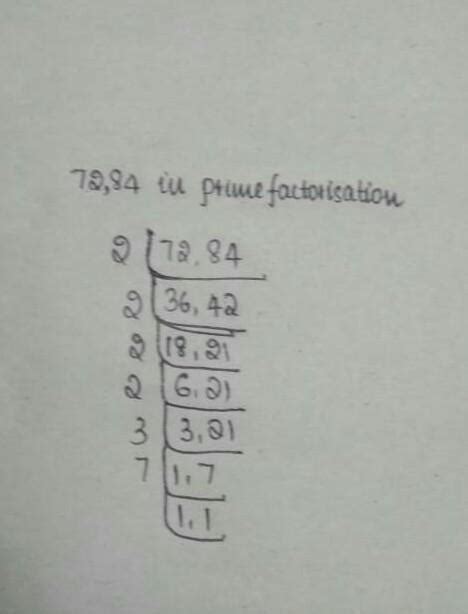 72,84 in prime factorisation
2 72,84
2 36,42
2 18,21
2 6,21
3 3,21
7 1,7
1,1